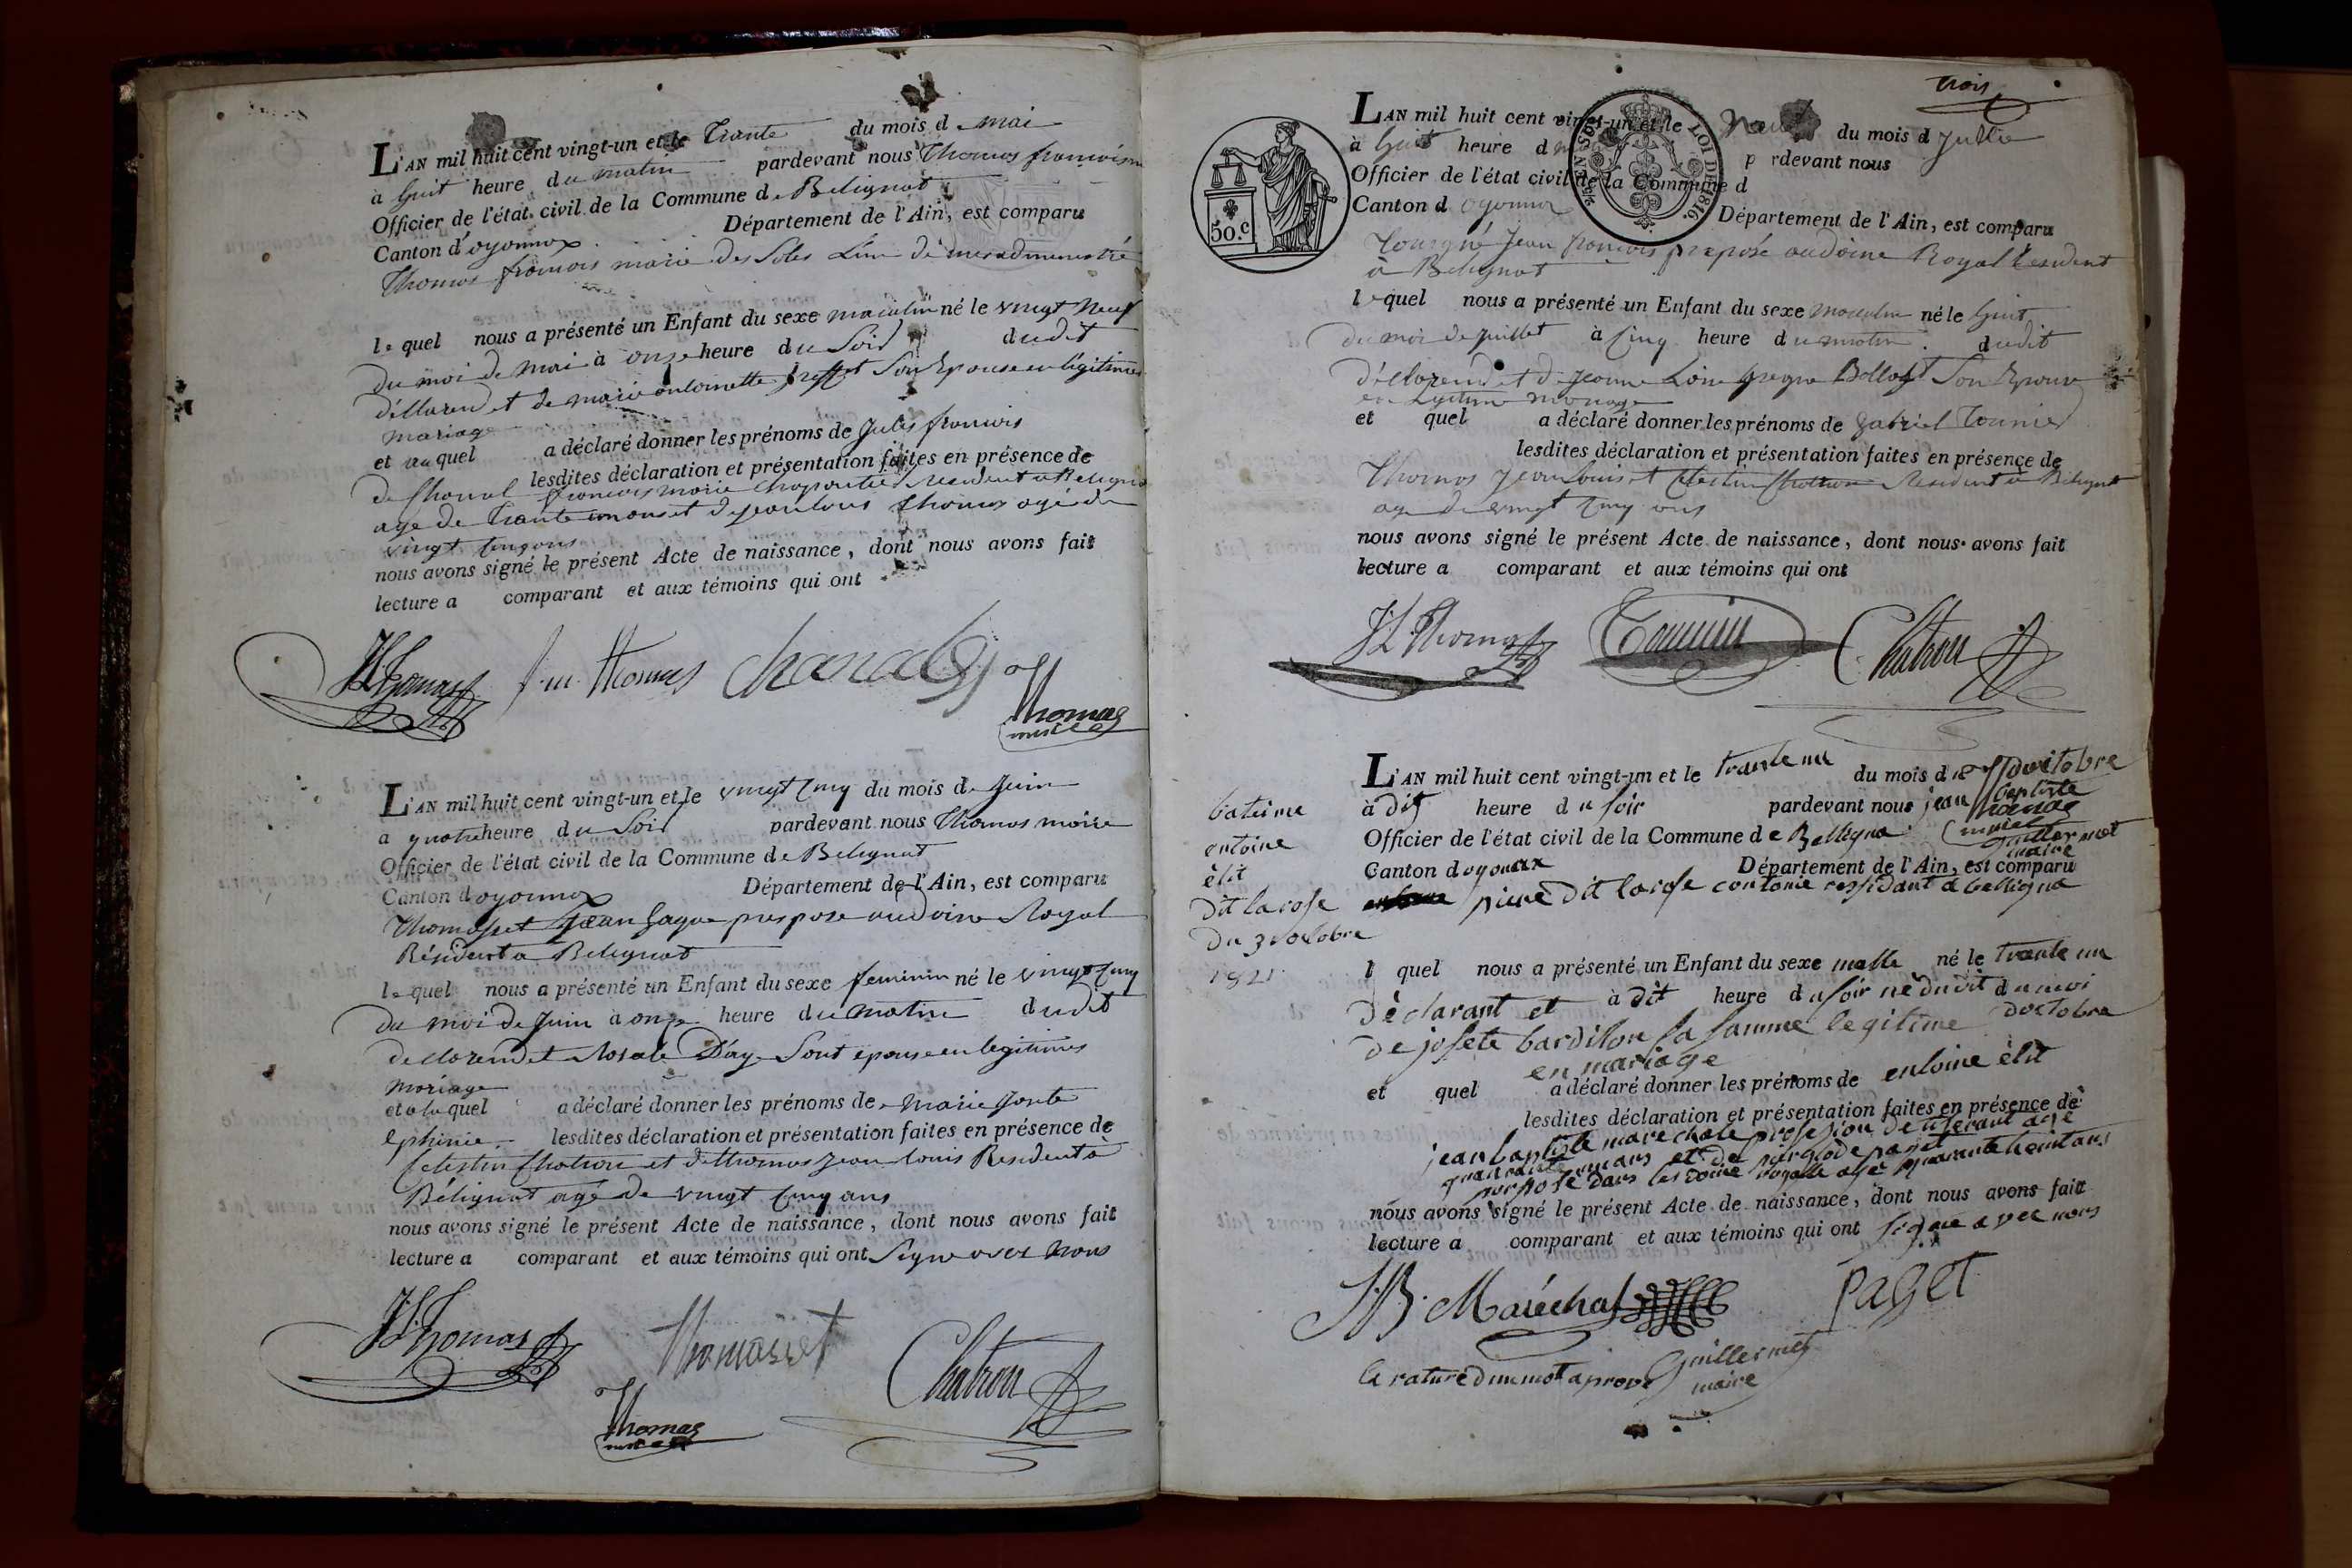 L'AN mil huit cent vingt-un et le Trante du mois d mai
à huit heure du matin pardevant nous Thomas
Officier de l'état civil de la Commune de Belignat
Canton d'oyonnax Département de l'Ain, est comparu
Thomas francois marie des Soles
le quel nous a présenté un Enfant du sexe masculin né le vingt neuf
du moi de mai à onze heure du Soir dudit
déllarend et de marie antoinette Son Epouse en légitimes
mariage
et au quel a déclaré donner les prénoms de Jules francois
lesdites déclaration et présentation faites en présence de
francois marie Resident a Beligna
age de Trante et de jean louis thomas agé de
vingt cinq ans
nous avons signé le présent Acte de naissance, dont nous avons fait
lecture a comparant et aux témoins qui ont
JLThomas f. m. thomas chanal
Thomas
L'AN mil huit cent vingt-un et le vingt cinq du mois de Juin
a quatre heure du Soir pardevant nous Thomas maire
Officier de l'état civil de la Commune de Belignat
Canton d oyonnax Département de l'Ain, est comparu
Thomasset Jean Jaque prepose audoine Royal
Résident a Belignat
le quel nous a présenté un Enfant du sexe feminin né le vingt cinq
du moi de Juin à onze heure du matin dudit
dellarend et Rosale D'aye Sont épouse en legitimes
mariage
et a la quel a déclaré donner les prénoms de Marie
ephinie lesdites déclaration et présentation faites en présence de
Celestin Chatron et de thomas Jean louis Resident à
Bélignat agé de vingt cinq ans
nous avons signé le présent Acte de naissance, dont nous avons fait
lecture a comparant et aux témoins qui ont Signe avec nous
JLThomas Thomasset Chatron
Thomas
trois
50.c
LOI DE 1816.
L'AN mil huit cent vingt-un et le du mois d Jullie
à huit heure d pardevant nous
Officier de l'état civil de la Commune d
Canton d oyonnax Département de l'Ain, est comparu
Jean francois preposé audoine Royal Resident
à Belignat
lequel nous a présenté un Enfant du sexe masculin né le huit
du moi de juillet à cinq heure du matin dudit
déllarend et de jeanne Son Epouse
en Legitime menage
et quel a déclaré donner les prénoms de Gabriel Tournier
lesdites déclaration et présentation faites en présence de
Thomas Jean louis et Celestin Chatron Resident à Belignat
age de vingt cinq ans
nous avons signé le présent Acte de naissance, dont nous avons fait
lecture a comparant et aux témoins qui ont
JL Thomas Tournier Chatron
batime
entoine
èlit
dit la rose
du 31 octobre
1821
L'AN mil huit cent vingt-un et le trante un du mois d doctobre
à dit heure du soir pardevant nous jean baptiste
Officier de l'état civil de la Commune de Belligna guillermet
Canton doyonax maire
Département de l'Ain, est comparu
piere dit la rose contonie ressidant a belligna
l quel nous a présenté un Enfant du sexe malle né le trante un
à dit heure du soir nè dudit du moi
dèclarant et doctobre
de josete bardilon sa famme legitime
en mariage
et quel a déclaré donner les prénoms de entoine èlit
lesdites déclaration et présentation faites en présence de
jean baptiste marechale profesion de tiserant agé
et de paget
porposé dans les doine royalle age quarante huit ans
nous avons signé le présent Acte de naissance, dont nous avons fait
lecture a comparant et aux témoins qui ont signe avec nous
J.B. Maréchal paget
la rature dun mot aprove Guillermet
maire